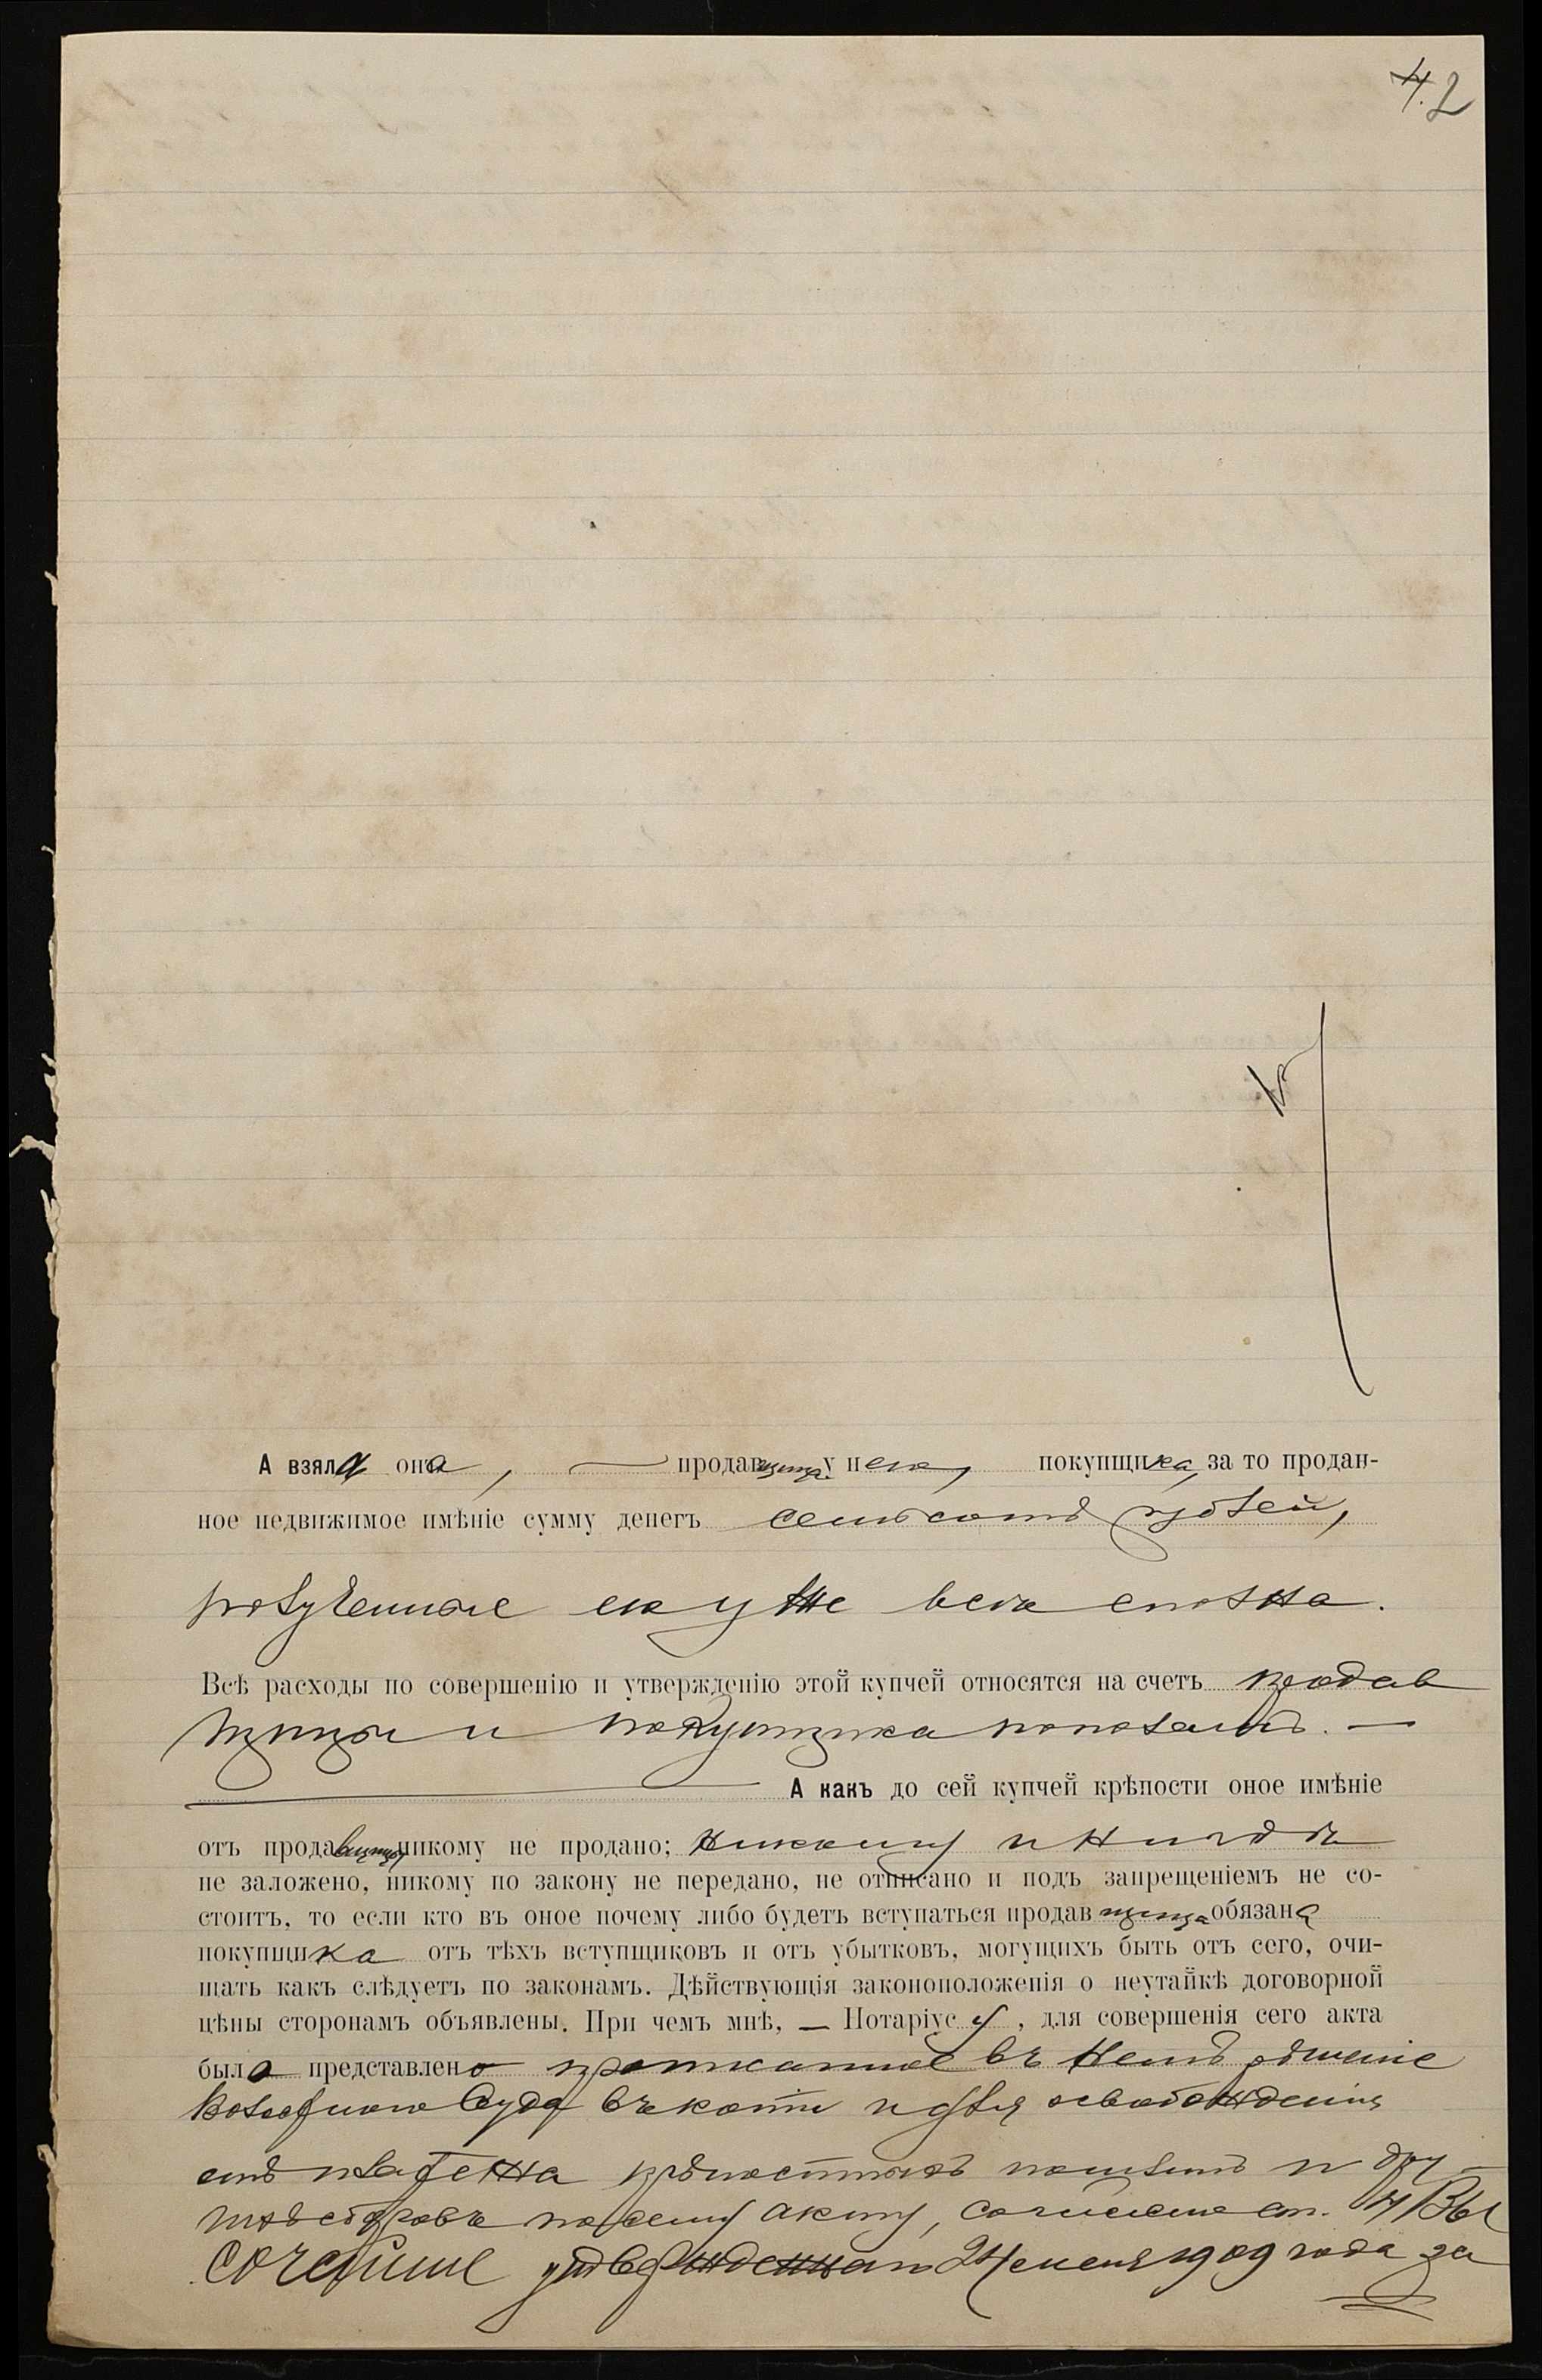 4.2
А взяла она, — продавщица у него, покупщика, за то продан-
ное недвижимое имѣніе сумму денегъ семьсотъ рублей,
полученные ею уже всѣ сполна.
Всѣ расходы по совершенію и утвержденію этой купчей относятся на счетъ продав
щицы и покупщика пополамъ. —
— А какъ до сей купчей крѣпости оное имѣніе
отъ продавщицы никому не продано; никому и нигдѣ
не заложено, никому по закону не передано, не отписано и подъ запрещеніемъ не со-
стоитъ, то если кто въ оное почему либо будетъ вступаться продавщица обязана
покупщика отъ тѣхъ вступщиковъ и отъ убытковъ, могущихъ быть отъ сего, очи-
щать какъ слѣдуетъ по законамъ. Дѣйствующія законоположенія о неутайкѣ договорной
цѣны сторонамъ объявлены. При чемъ мнѣ, — Нотаріусу, для совершенія сего акта
было представлено прописанное въ немъ рѣшеніе
Волостного Суда въ копіи и для освобожденія
отъ платежа крѣпостныхъ пошлинъ и
сборовъ по сему акту, согласно ст. 4 Вы
сочайше утвержденнаго 24 1909 года за